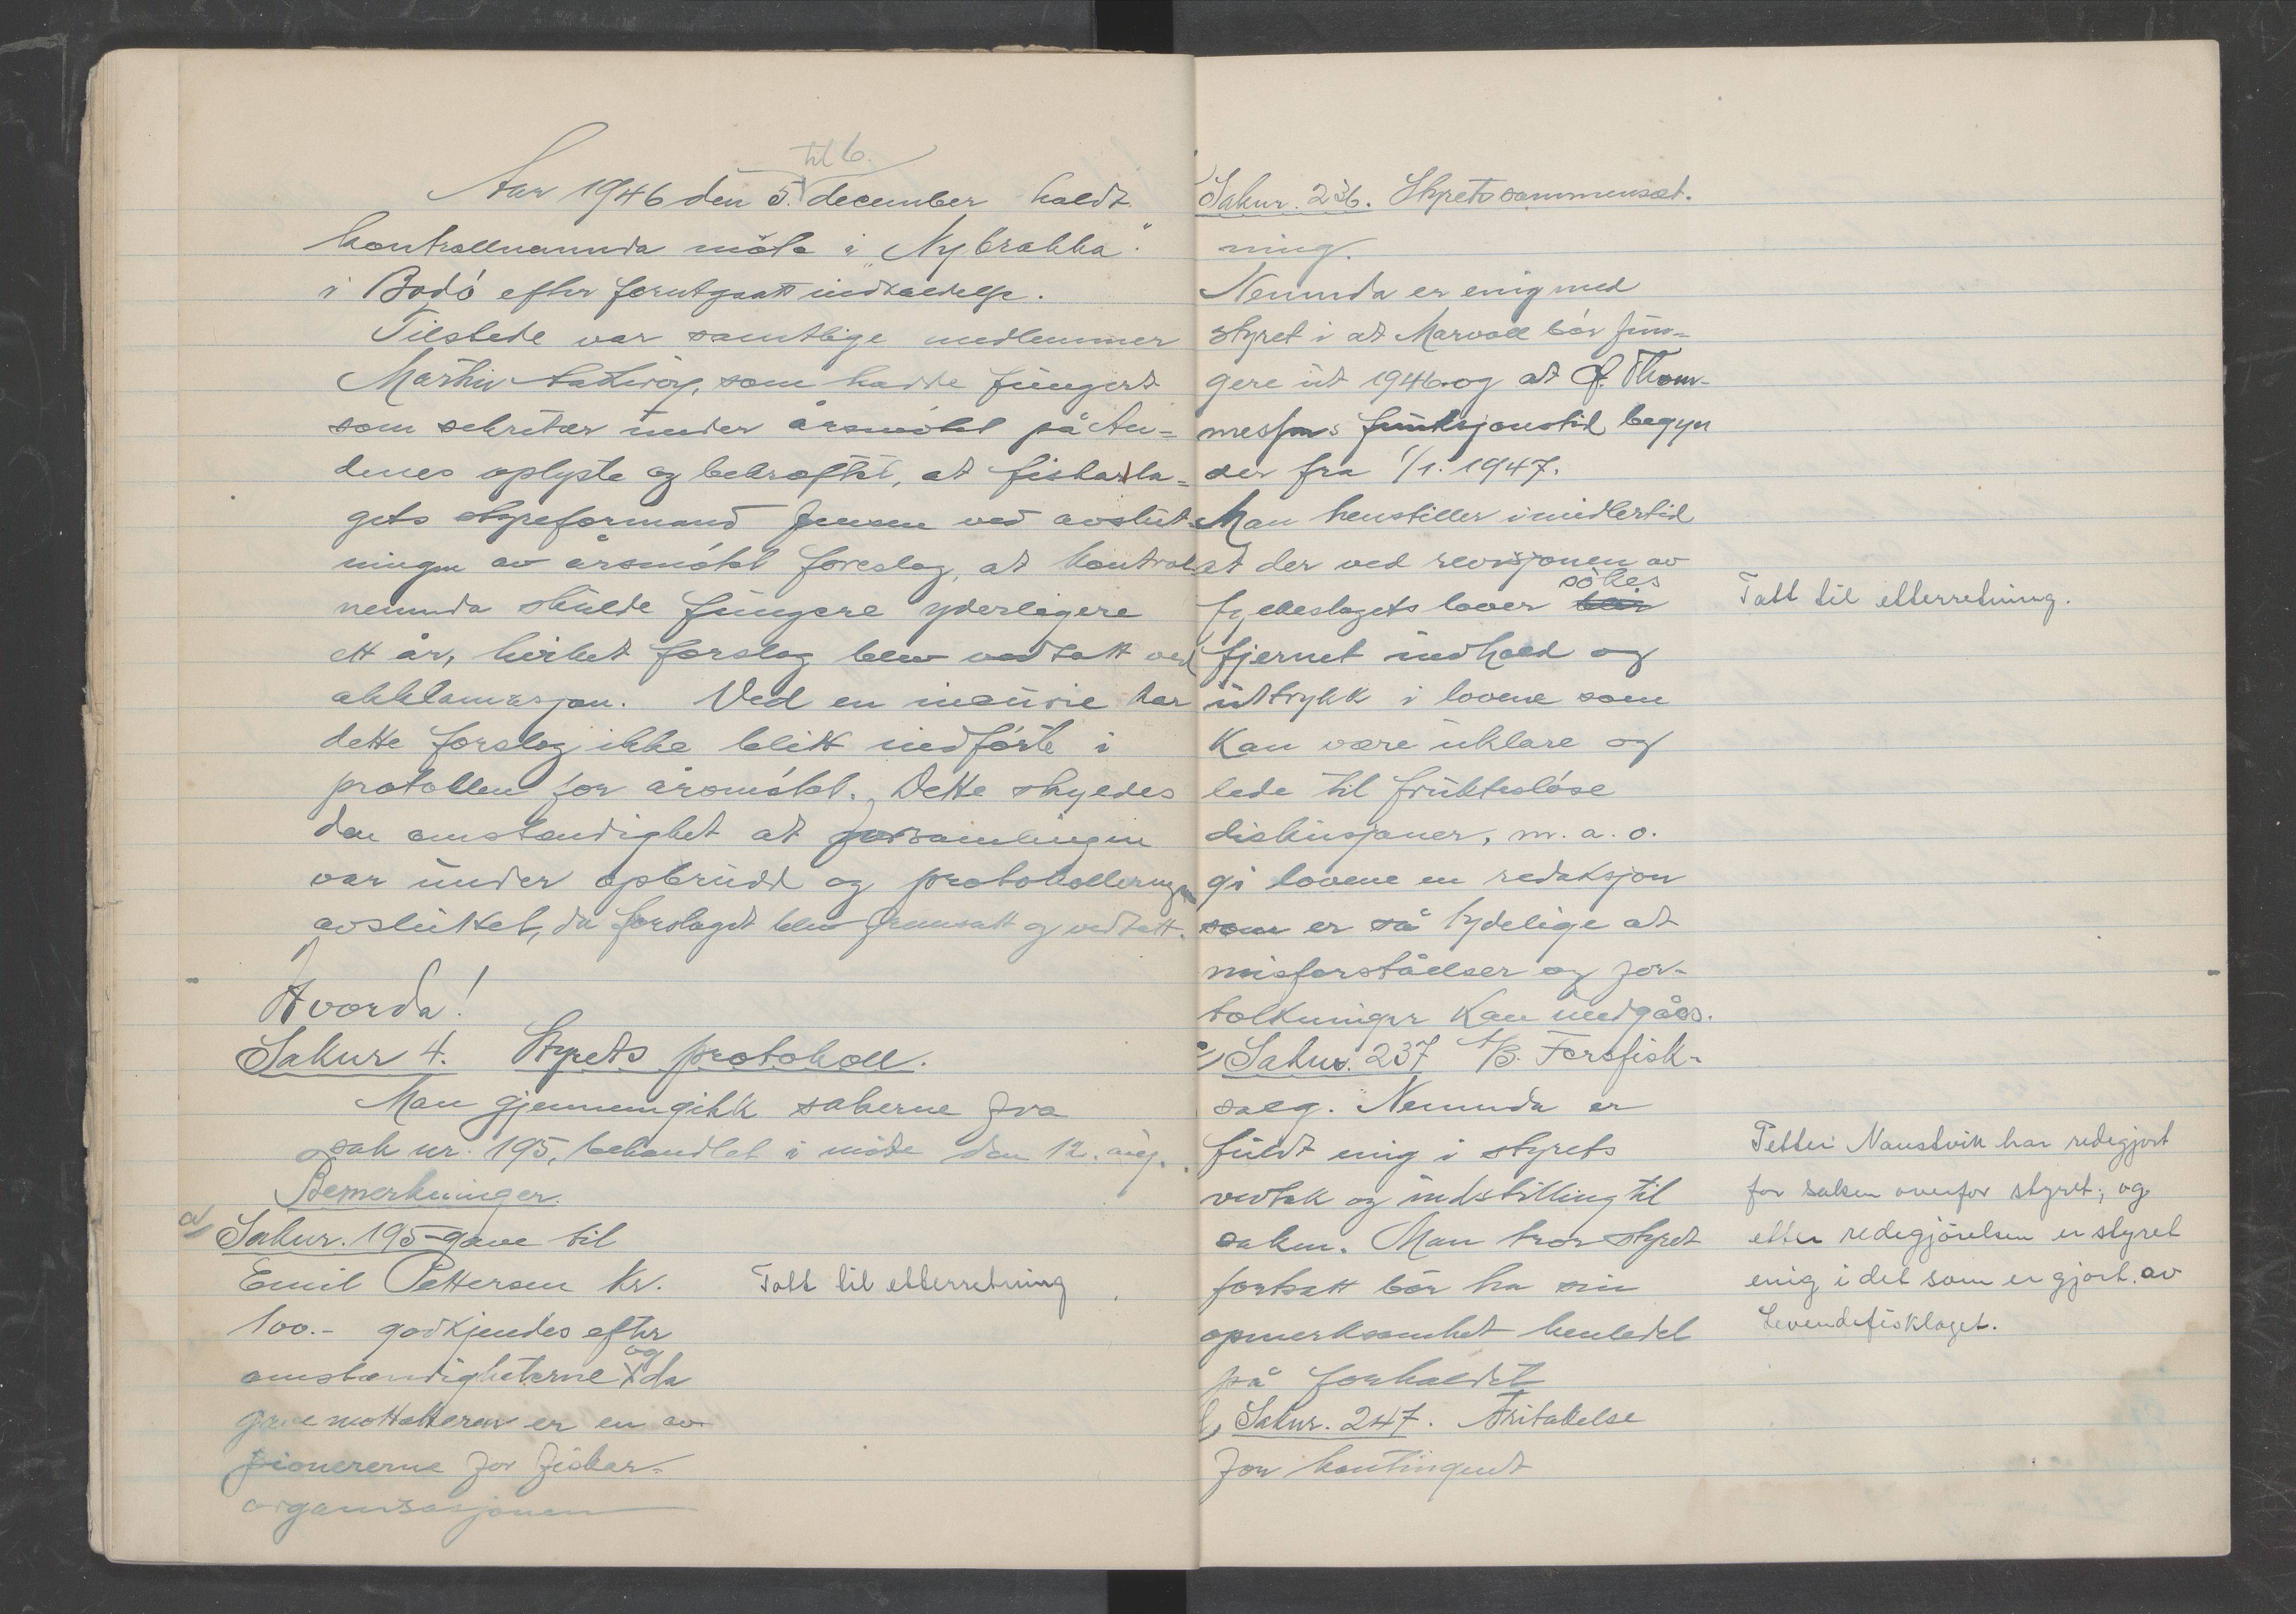 til 6.
Aar 1946 den 5. december holdt
kontrollnemnda möte i "Nybrakka"
i Bodö efter forutgaatt indkaldelse.
Tilstede var samtlige medlemmer
Martin som hadde fungert
som sekretær under årsmötet på An=
denes oplyste og bekræftet, at fiskarla=
gets styreformand Jensen ved avslut-
ningen av årsmötet foreslog, at kontrol-
nemnda skulde fungere yderligere
ett år, hvilket forslag blev vedtatt ved
akklamasjon. Ved en incurie har
dette forslog ikke blitt indförte i
protokollen for årsmötet. Dette skyldes
den omstendighet at forsamlingen
var under opbrudd og protokolleringen
avsluttet, da forslaget blev fremsatt og vedtatt.
Hvorda!
Saknr 4. Styrets protokoll.
Man gjennemgikk sakerne fra
sak nr. 195, behandlet i möte den 12. aug.
Bemerkninger.
a) Saknr. 195 - gave til
Emil Pettersen kr.
100.- godkjendes efter
og
omstendigheterne da
gavemottakeren er en av
pionererne for fiskar-
organisasjonen
Tatt til etterretning
Saknr. 236. Styretssammenset-
ning.
Nemnda er enig med
styret i at Marvoll bör fun=
gere ut 1946 og at Thom-
messens funksjonstid begyn
der fra 1/1. 1947.
Man henstiller imidlertid
at der ved revisjonen av
sökes
fylkeslagets lover blir
fjernet indhold og
uttrykk i lovene som
kan være uklare og
lede til fruktesløse
diskusjoner, m. a. o.
gi lovene en redaksjon
som er så tydelige at
misforståelser og for-
tolkninger kan undgåes.
Saknr. 237 A/B. Fersfisk-
salg. Nemnda er
fuldt enig i styrets
vedtak og indstilling til
saken. Man tror styret
fortsatt bör ha sin
opmerksomhet henledet
på forholdet
Saknr. 247. Fritakelse
for kontingent
Tatt til etterretning.
Petter Naustvik har redegjort
for saken ovenfor styret, og
etter redegjörelsen er styret
enig i det som er gjort av
Levendefisklaget.